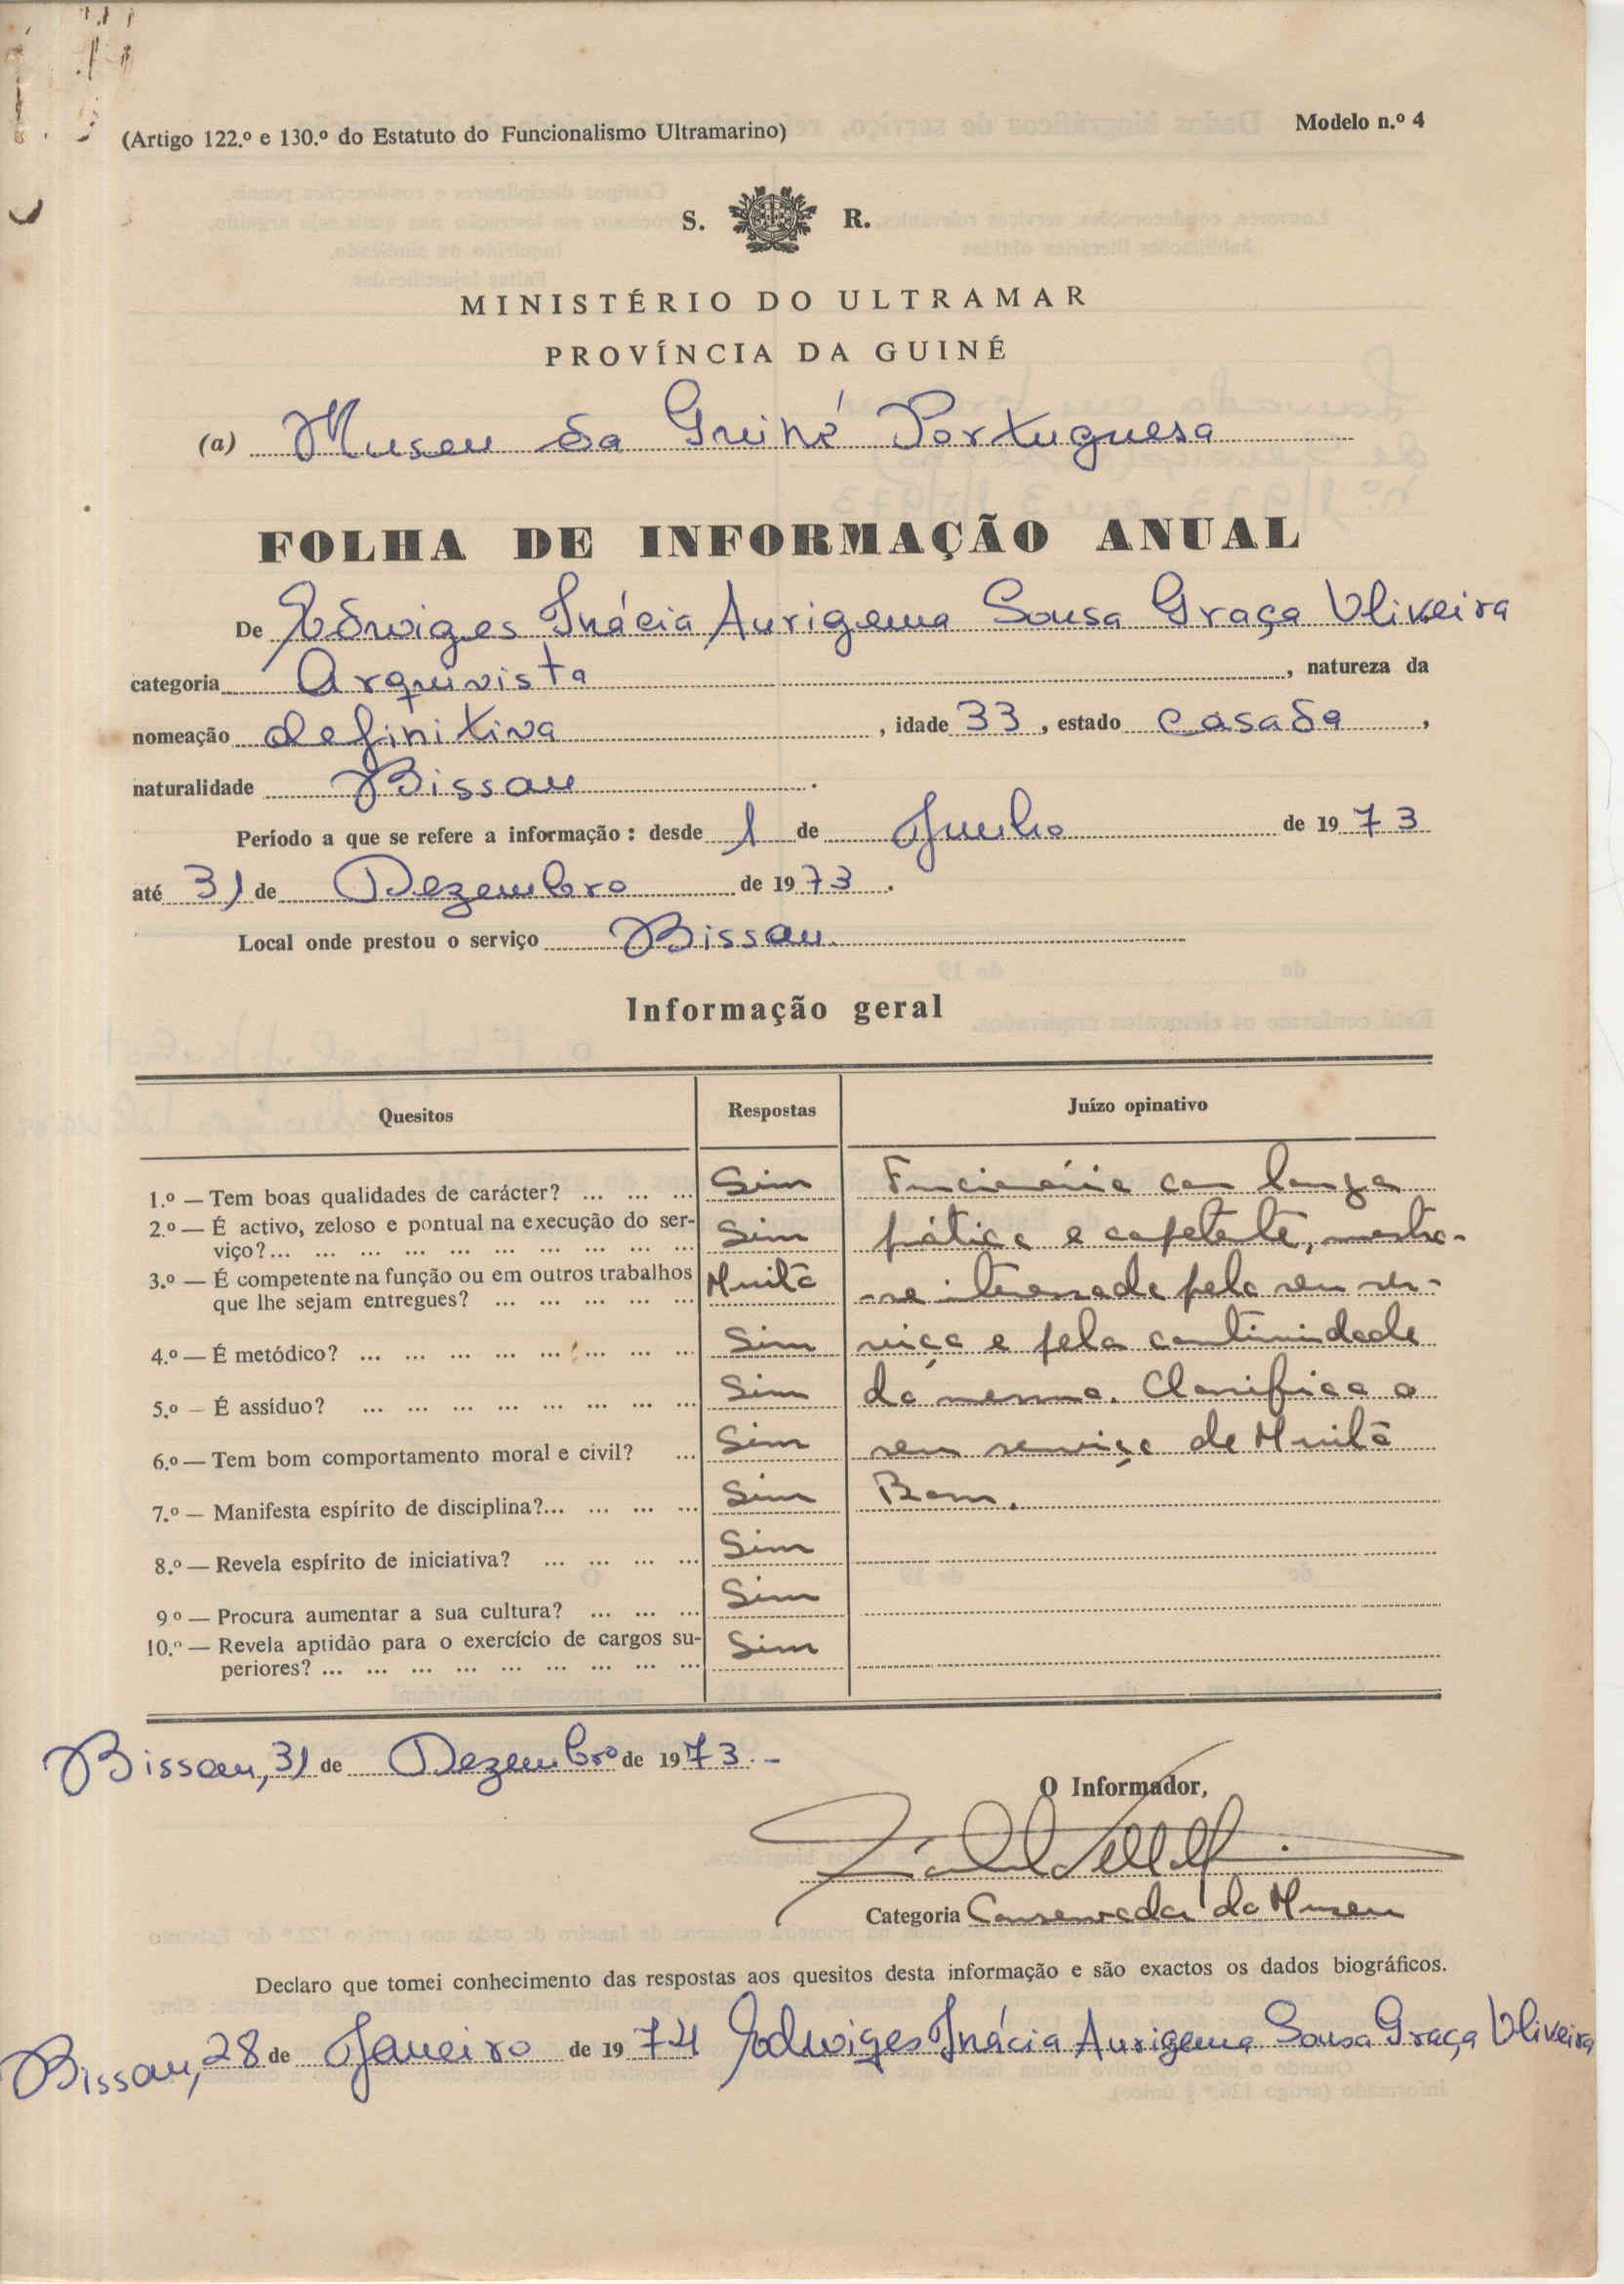 (Artigo 122.º e 130.º do Estatuto do Funcionalismo Ultramarino)
Modelo n.º 4
S. R.
MINISTÉRIO DO ULTRAMAR
PROVÍNCIA DA GUINÉ
(a) Museu da Guiné Portuguesa
FOLHA DE INFORMAÇÃO ANUAL
De Edwiges Inácia Aurigema Sousa Graça Oliveira
categoria Arquivista, natureza da
nomeação definitiva, idade 33, estado casada,
naturalidade Bissau.
Período a que se refere a informação: desde 1 de Junho de 1973
até 31 de Dezembro de 1973.
Local onde prestou o serviço Bissau.
Informação geral
Quesitos Respostas Juízo opinativo
1.º — Tem boas qualidades de carácter? ... ... ... Sim
2.º — É activo, zeloso e pontual na execução do ser-
viço?... ... ... ... ... ... ... ... ... ... Sim
3.º — É competente na função ou em outros trabalhos Muito
que lhe sejam entregues? ... ... ... ... ...
4.º — É metódico? ... ... ... ... ... ... ... ... Sim
5.º — É assíduo? ... ... ... ... ... ... ... ... Sim
6.º — Tem bom comportamento moral e civil? ... Sim
7.º — Manifesta espírito de disciplina?... ... ... ... Sim
8.º — Revela espírito de iniciativa? ... ... ... ... Sim
9º — Procura aumentar a sua cultura? ... ... ... Sim
10.º — Revela aptidão para o exercício de cargos su- Sim
periores? ... ... ... ... ... ... ... ... ...
Funcionária com longa
prática e competente, mostra-
-se interessada pelo seu ser-
viço e pela continuidade
do mesmo. Classifico o
seu serviço de Muito
Bom.
Bissau, 31 de Dezembro de 1973.-
O Informador,
Categoria Conservador do Museu
Declaro que tomei conhecimento das respostas aos quesitos desta informação e são exactos os dados biográficos.
Bissau, 28 de Janeiro de 1974 Edwiges Inácia Aurigema Sousa Graça Oliveira